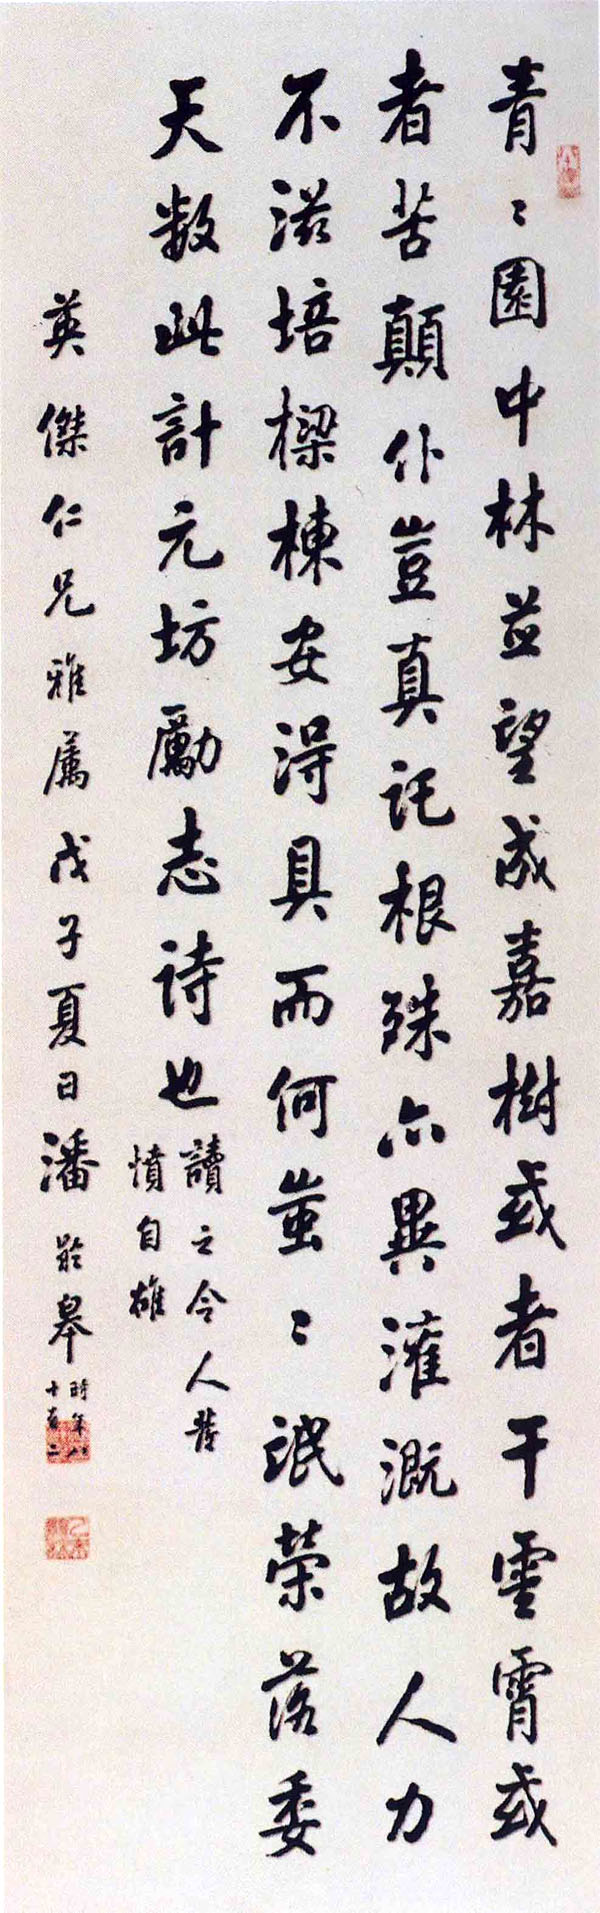 青〻園中林並望成嘉樹或者干雲霄或
者苦顛仆豈真託根殊亦異灌溉故人力
不滋培樑棟安得具而何蚩〻氓榮落委
天数此計元坊勵志诗也
讀之令人發
憤自雄
英傑仁兄雅屬戊子夏日潘齡皋
時年八
十有二